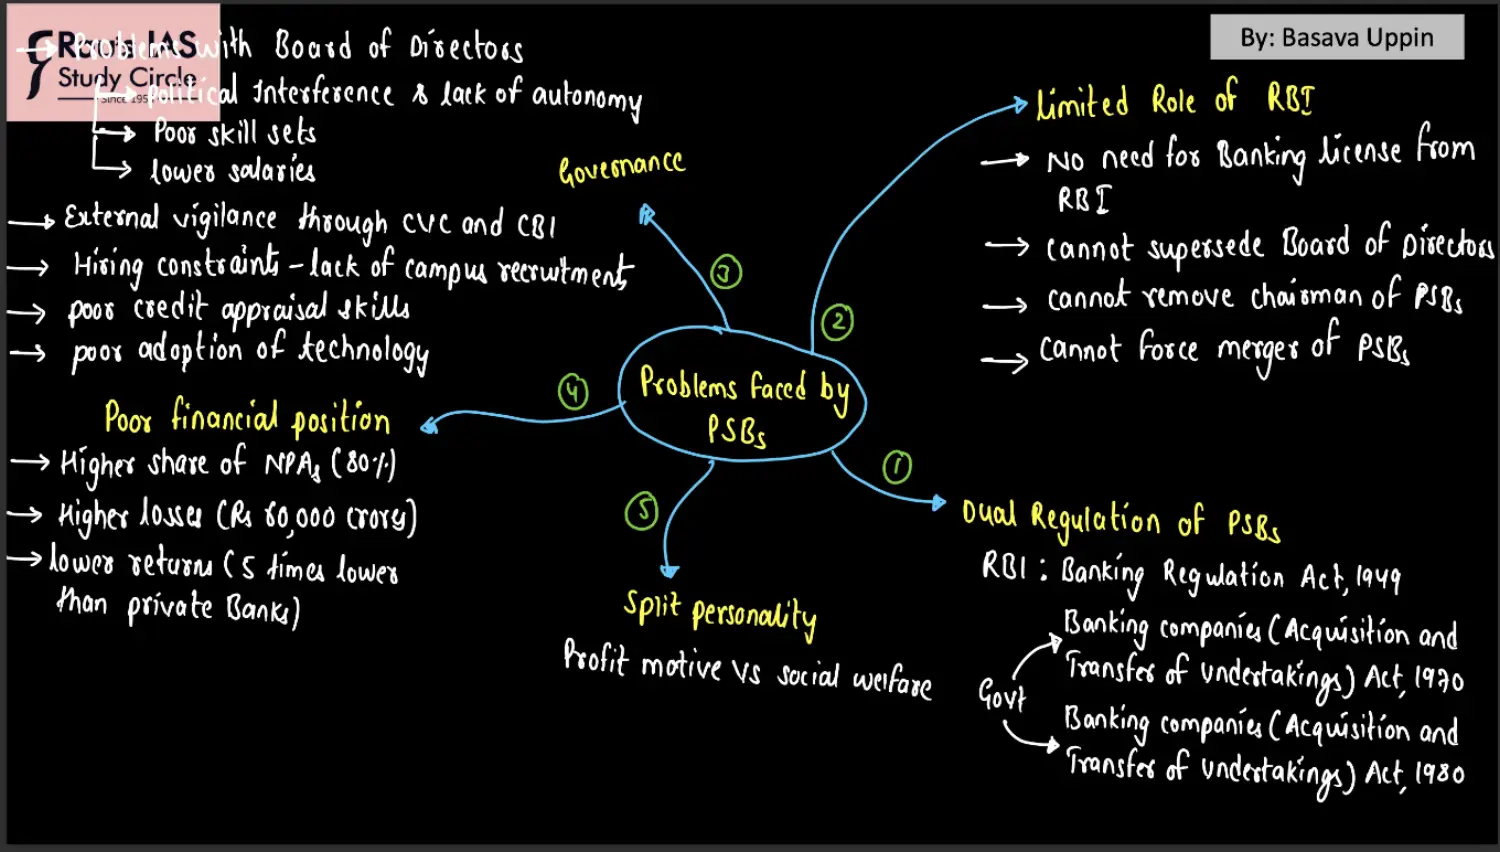 Rau's IAS
Study Circle
Since 1953
By: Basava Uppin
Problems faced by
PSBs
①
Dual Regulation of PSBs
RBI : Banking Regulation Act, 1949
Govt
Banking companies (Acquisition and
Transfer of undertakings) Act, 1970
Banking companies (Acquisition and
Transfer of undertakings) Act, 1980
②
Limited Role of RBI
→ No need for Banking license from
RBI
→ cannot supersede Board of Directors
→ cannot remove chairman of PSBs
→ cannot force merger of PSBs
③
Governance
→ Problems with Board of Directors
→ Political Interference & lack of autonomy
→ Poor skill sets
→ lower salaries
→ External vigilance through CVC and CBI
→ Hiring constraints - lack of campus recruitment
→ poor credit appraisal skills
→ poor adoption of technology
④
Poor financial position
→ Higher share of NPAs (80%)
→ Higher losses (Rs 60,000 crores)
→ lower returns (5 times lower
than private Banks)
⑤
Split personality
Profit motive vs social welfare